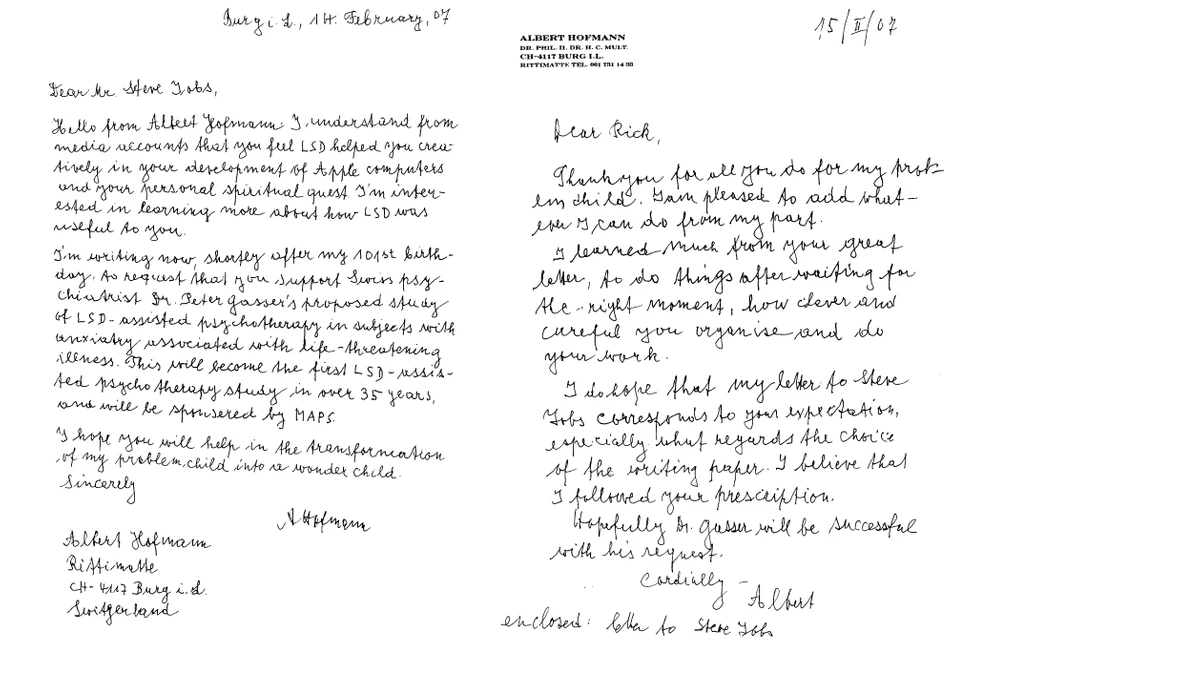 Burg i. L., 14. February, 07
Dear Mr. Steve Jobs,
Hello from Albert Hofmann. I understand from
media accounts that you feel LSD helped you crea-
tively in your development of Apple computers
and your personal spiritual quest. I'm inter-
ested in learning more about how LSD was
useful to you.
I'm writing now, shortly after my 101st birth-
day, to request that you support Swiss psy-
chiatrist Dr. Peter Gasser's proposed study
of LSD-assisted psychotherapy in subjects with
anxiatry associated with life-threatening
illness. This will become the first LSD-assis-
ted psychotherapy study in over 35 years,
and will be sponsered by MAPS.
I hope you will help in the transformation
of my problem child into a wonder child.
Sincerely
A Hofmann
Albert Hofmann
Rittimatte
CH-4117 Burg i. L.
Switzerland
15/II/07
ALBERT HOFMANN
DR. PHIL. II. DR. H. C. MULT.
CH-4117 BURG I.L.
RITTIMATTE TEL. 061 731 14 33
Dear Rick,
Thank you for all you do for my probl-
em child. I am pleased to add what-
ever I can do from my part.
I learned much from your great
letter, to do things after waiting for
the right moment, how clever and
careful you organise and do
your work.
I do hope that my letter to Steve
Jobs corresponds to your expectation,
especially what regards the choice
of the writing paper. I believe that
I followed your prescription.
Hopefully Dr. Gasser will be successful
with his request.
Cordially –
Albert
enclosed: letter to Steve Jobs